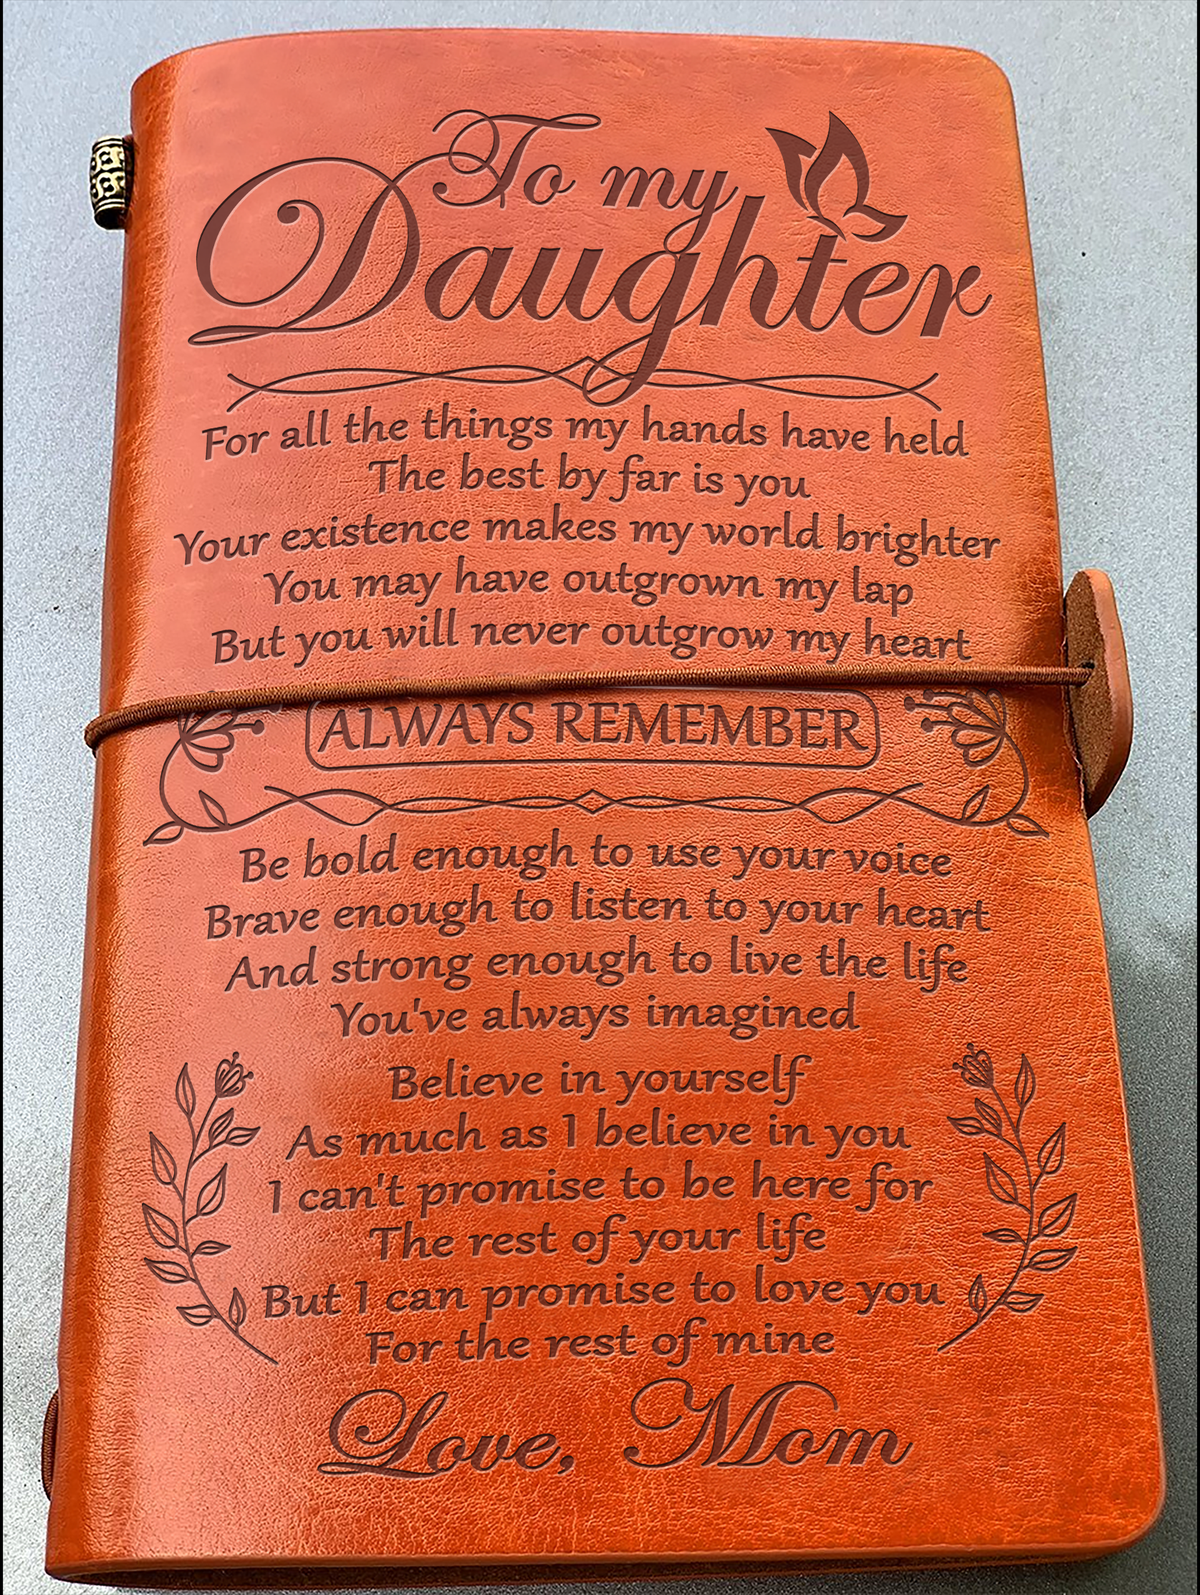 To my
Daughter
For all the things my hands have held
The best by far is you
Your existence makes my world brighter
You may have outgrown my lap
But you will never outgrow my heart
ALWAYS REMEMBER
Be bold enough to use your voice
Brave enough to listen to your heart
And strong enough to live the life
You've always imagined
Believe in yourself
As much as I believe in you
I can't promise to be here for
The rest of your life
But I can promise to love you
For the rest of mine
Love, Mom